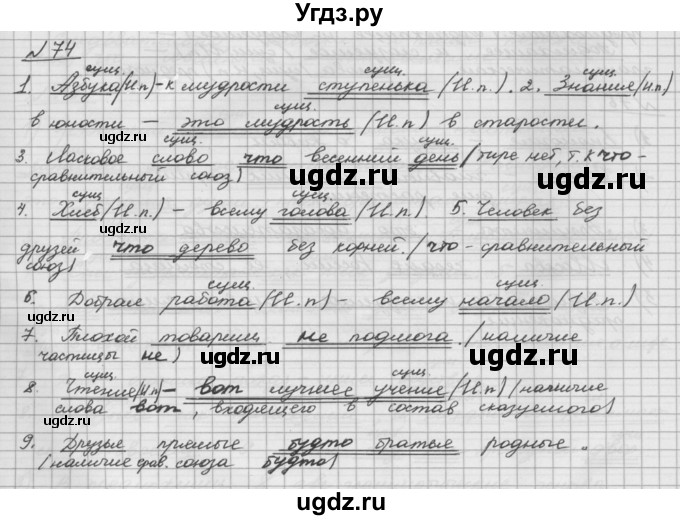 Угдз.ру
№ 74
сущ. сущ. сущ.
1. Азбука(И.п)-к мудрости ступенька (И.п.). 2. Знание(И.п)
сущ.
в юности — это мудрость (И.п) в старости.
сущ. сущ.
3. Ласковое слово что весенний день/тире нет, т.к что-
сравнительный союз)
сущ. сущ.
4. Хлеб(И.п.) - всему голова (И.п.) 5. Человек без
друзей что дерево без корней./что - сравнительный
союз)
сущ. сущ.
6. Добрая работа(И.п) - всему начало (И.п.)
7. Плохой товарищ не подмога./наличие
частицы не)
сущ. сущ.
8. Чтение(И.п)- вот лучшее учение/(И.п)(наличие
слова вот, входящего в состав сказуемого)
9. Друзья прямые будто братья родные.
(наличие срав. союза будто)
ugdz.ru
ugdz.ru
ugdz.ru
ugdz.ru
ugdz.ru
ugdz.ru
ugdz.ru
ugdz.ru
ugdz.ru
ugdz.ru
ugdz.ru